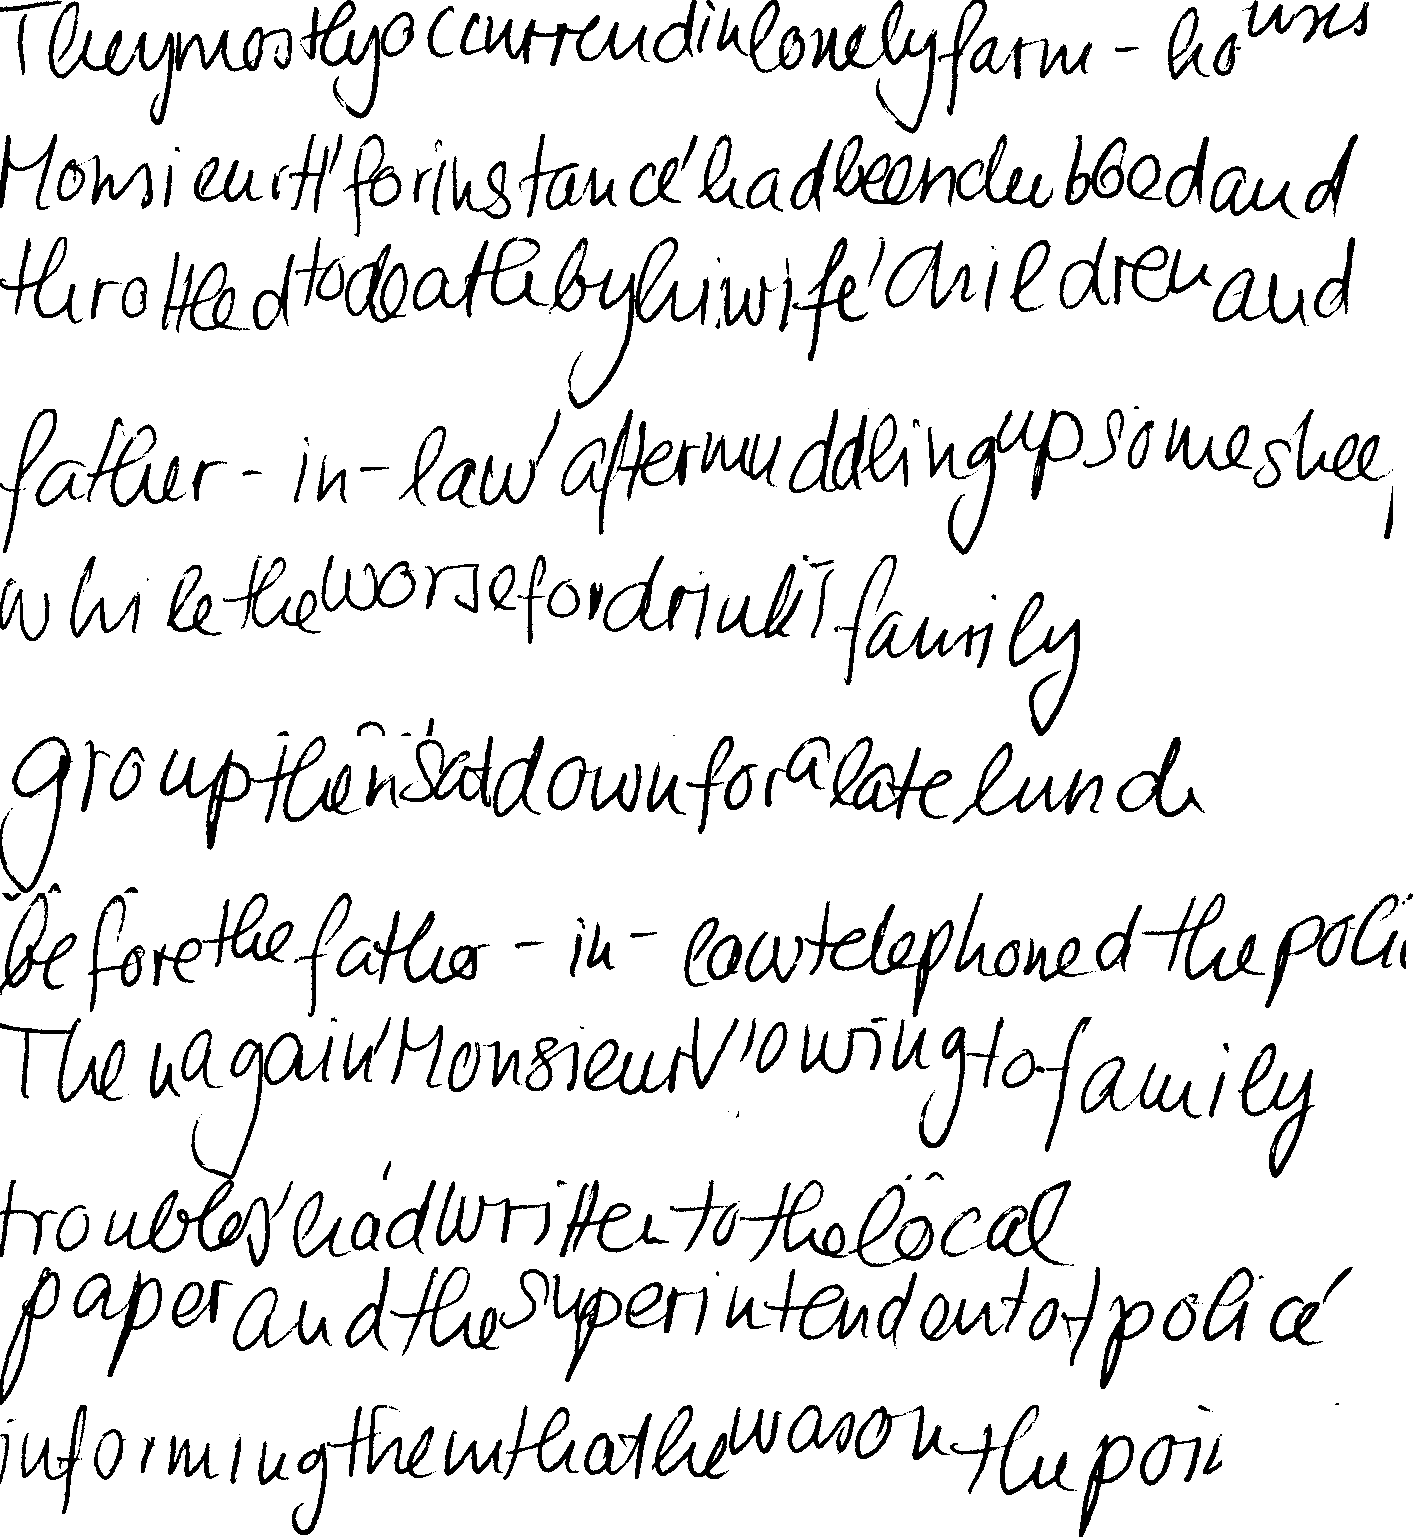 They mostly occurred in lonely farm - houses
Monsieur H' for instance' had been clubbed and
throttled to death by hi wife' children and
father - in - law' after muddling up some shee
while the worse for drink' family
group then sat down for a late lunch
before the father - in - law telephoned the poli
Then again' Monsieur V' owing to family
troubles' had written to the local
paper and the superintendent of police'
informing them that he was on the poi